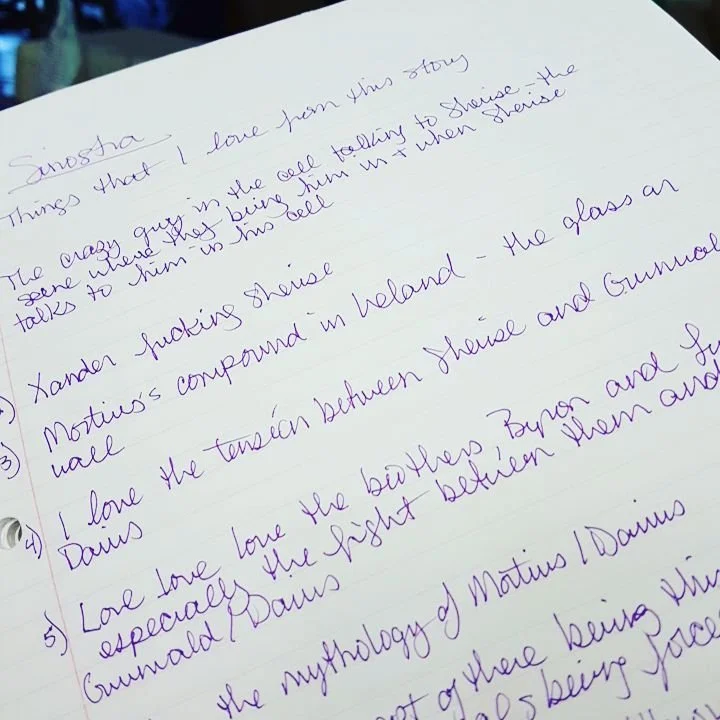 Sinostra
Things that I love from this story
The crazy guy in the cell talking to Sherise - the
scene where they bring him in + when Sherise
talks to him in his cell
Xander fucking Sherise
3) Mortius's compound in Ireland - the glass
wall
4) I love the tension between Sherise and
Darius
5) Love love love the brothers, Byron and
especially the fight between them and
Grunwald/Darius
the mythology of Mortius/Darius
of there being
being